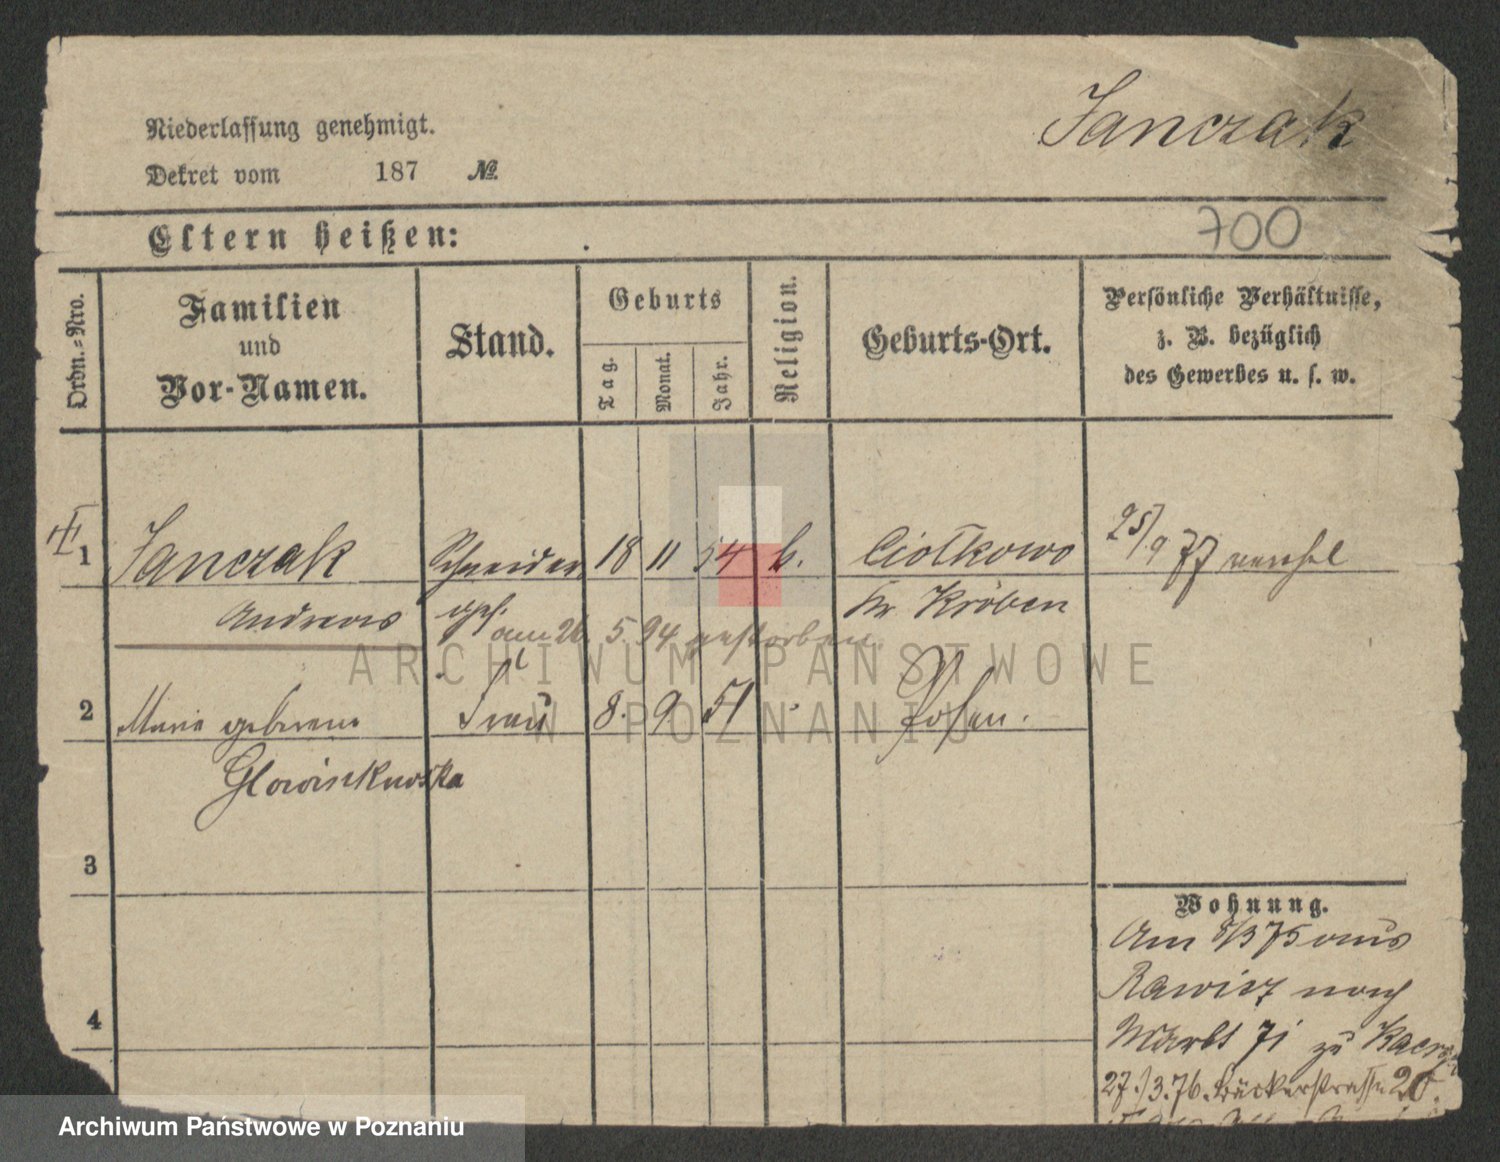 Niederlassung genehmigt.
Dekret vom 187 №
Janczak
Eltern heißen:
700
Ordn.=Nro.
Familien
und
Vor-Namen.
Stand.
Geburts
Tag.
Monat.
Jahr.
Religion.
Geburts-Ort.
Persönliche Verhältnisse,
z. B. bezüglich
des Gewerbes u. s. w.
1 Janczak Schneider 18 11 54 k. Ciołkowo 25/9 77
Andreas Kr. Kröben
am 26. 5. 94 gestorben.
2 Marie geborene Frau 8. 9 51 Posen.
Glowinkowska
3
4
Wohnung.
Am 8/3 75 aus
Rawicz nach
Markt 71 zu
27./3.76. Bäckerstrasse 20.
ARCHIWUM PAŃSTWOWE
W POZNANIU
Archiwum Państwowe w Poznaniu